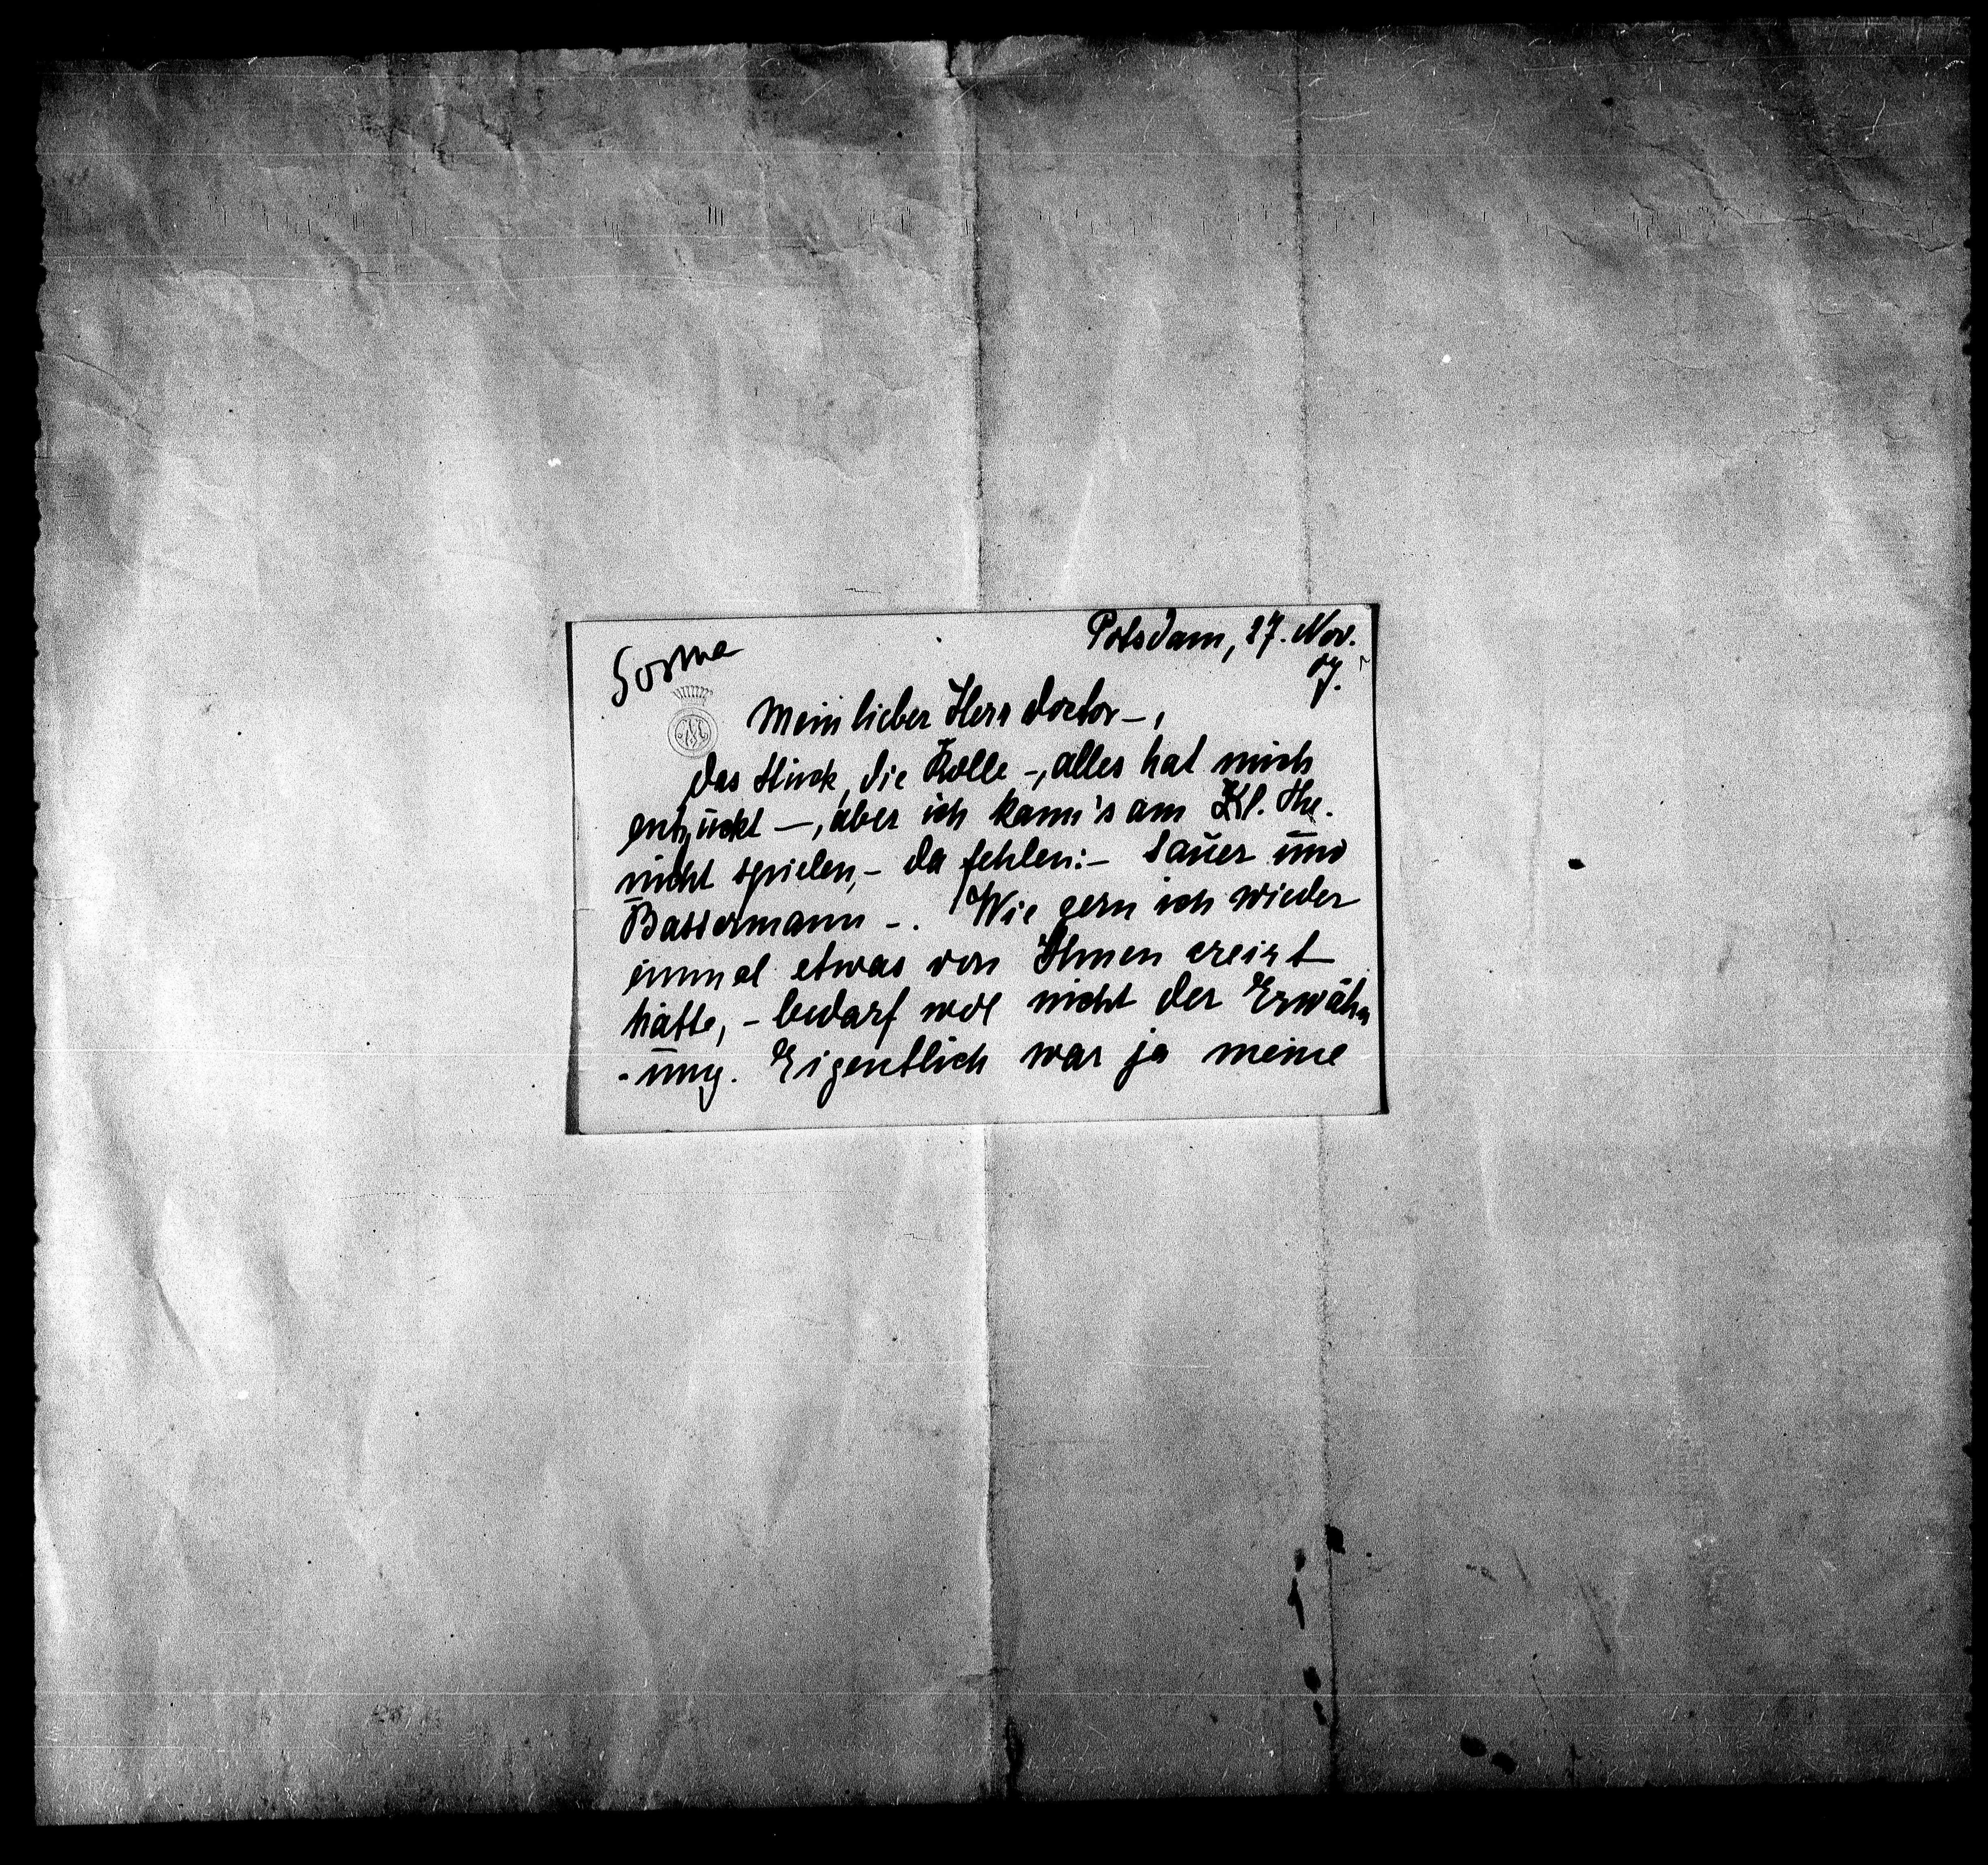 Sorma
Potsdam, 27. Nov.
07.
Mein lieber Herr Doctor –,
das Stück, die Rolle –, alles hat mich
entzückt –, aber ich kann's am Kl. The.
nicht spielen, – da fehlen: – Sauer und
Bassermann –. Wie gern ich wieder
einmal etwas von Ihnen creirt
hätte, – bedarf wol nicht der Erwähn
-ung. Eigentlich war ja meine